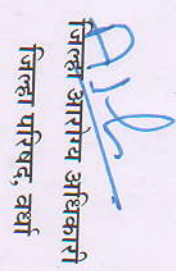 जिल्हा आरोग्य अधिकारी
जिल्हा परिषद, वर्धा